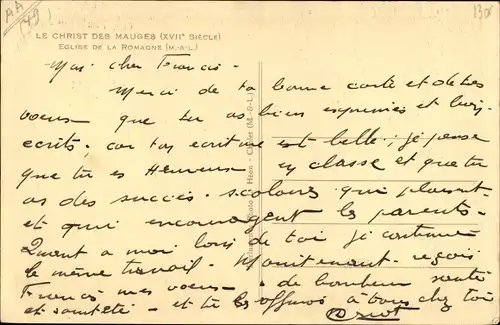 AA
(49)
130
LE CHRIST DES MAUGES (XVIIe SIÈCLE)
EGLISE DE LA ROMAGNE (M.-&-L.)
Mon cher Francis -
Merci de ta bonne carte et de tes
voeux que tu as bien exprimés et bien
écrits, car ton écriture est belle ; je pense
que tu es Heureux en classe et que tu
as des succès scolaires qui plaisent
et qui encouragent les parents -
Quant à moi loin de toi je continue
le même travail - Maintenant reçois
Francis mes voeux de bonheur santé
et sainteté - et tu les offriras à tous chez toi